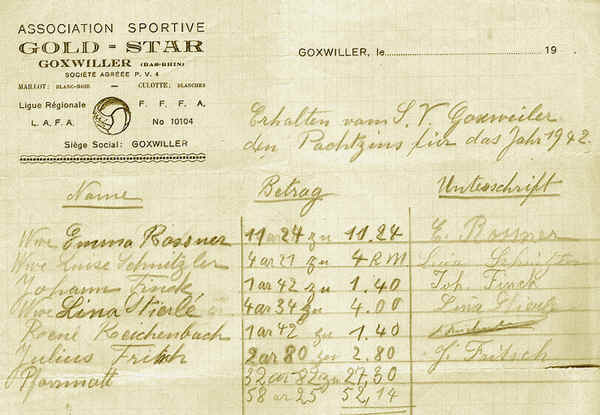 ASSOCIATION SPORTIVE
GOLD - STAR
GOXWILLER (BAS-RHIN)
SOCIÉTÉ AGRÉÉE P. V. 4
MAILLOT: BLANC-NOIR — CULOTTE: BLANCHES
Ligue Régionale F. F. F. A.
L. A. F. A. No 10104
Siège Social: GOXWILLER
GOXWILLER, le 19
Erhalten vom S. V. Goxweiler
den Pachtzins für das Jahr 1942.
Name Betrag Unterschrift
Wwe Emma Rossner 11 ar 24 zu 11.24 E. Rossner
Wwe Luise Schnitzler 4 ar 21 zu 4 RM
Johann Finck 1 ar 42 zu 1.40 Joh. Finck
Wwe Lina Stierlé 4 ar 34 zu 4.00 Lina Stierlé
René Reichenbach 1 ar 42 zu 1.40
Julius Fritsch 2 ar 80 zu 2.80 J. Fritsch
Pfarrmatt 32 ar 82 zu 27,30
58 ar 25 52,14